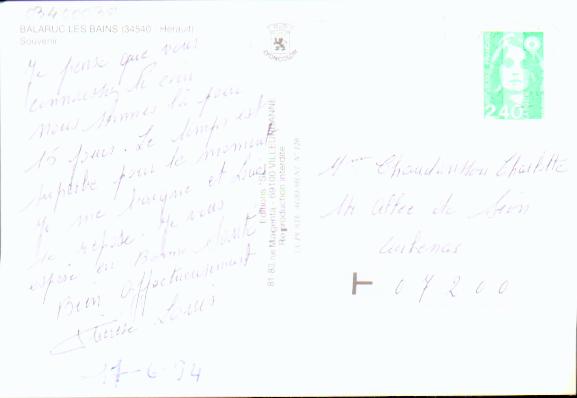 BALARUC LES BAINS (34540 - Hérault)
Souvenir
Je pense que vous
connaissez le coin
nous sommes là pour
15 jours. Le temps est
superbe pour le moment
Je me baigne et Louis
se repose. Je vous
espère en Bonne santé
Bien Affectueusement
Louis
17-6-94
D'ONCOURT
81-83, rue Magenta - 69100 VILLEURBANNE
Reproduction interdite
2,40
Mme Charlotte
Allée de
Aubenas
07200